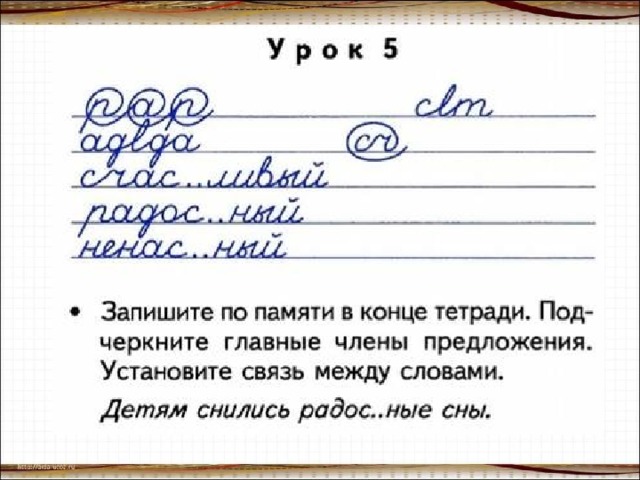 Урок 5
рар свт
адвда сч
счас..ливый
радос..ный
ненас..ный
• Запишите по памяти в конце тетради. Под-
черкните главные члены предложения.
Установите связь между словами.
Детям снились радос..ные сны.